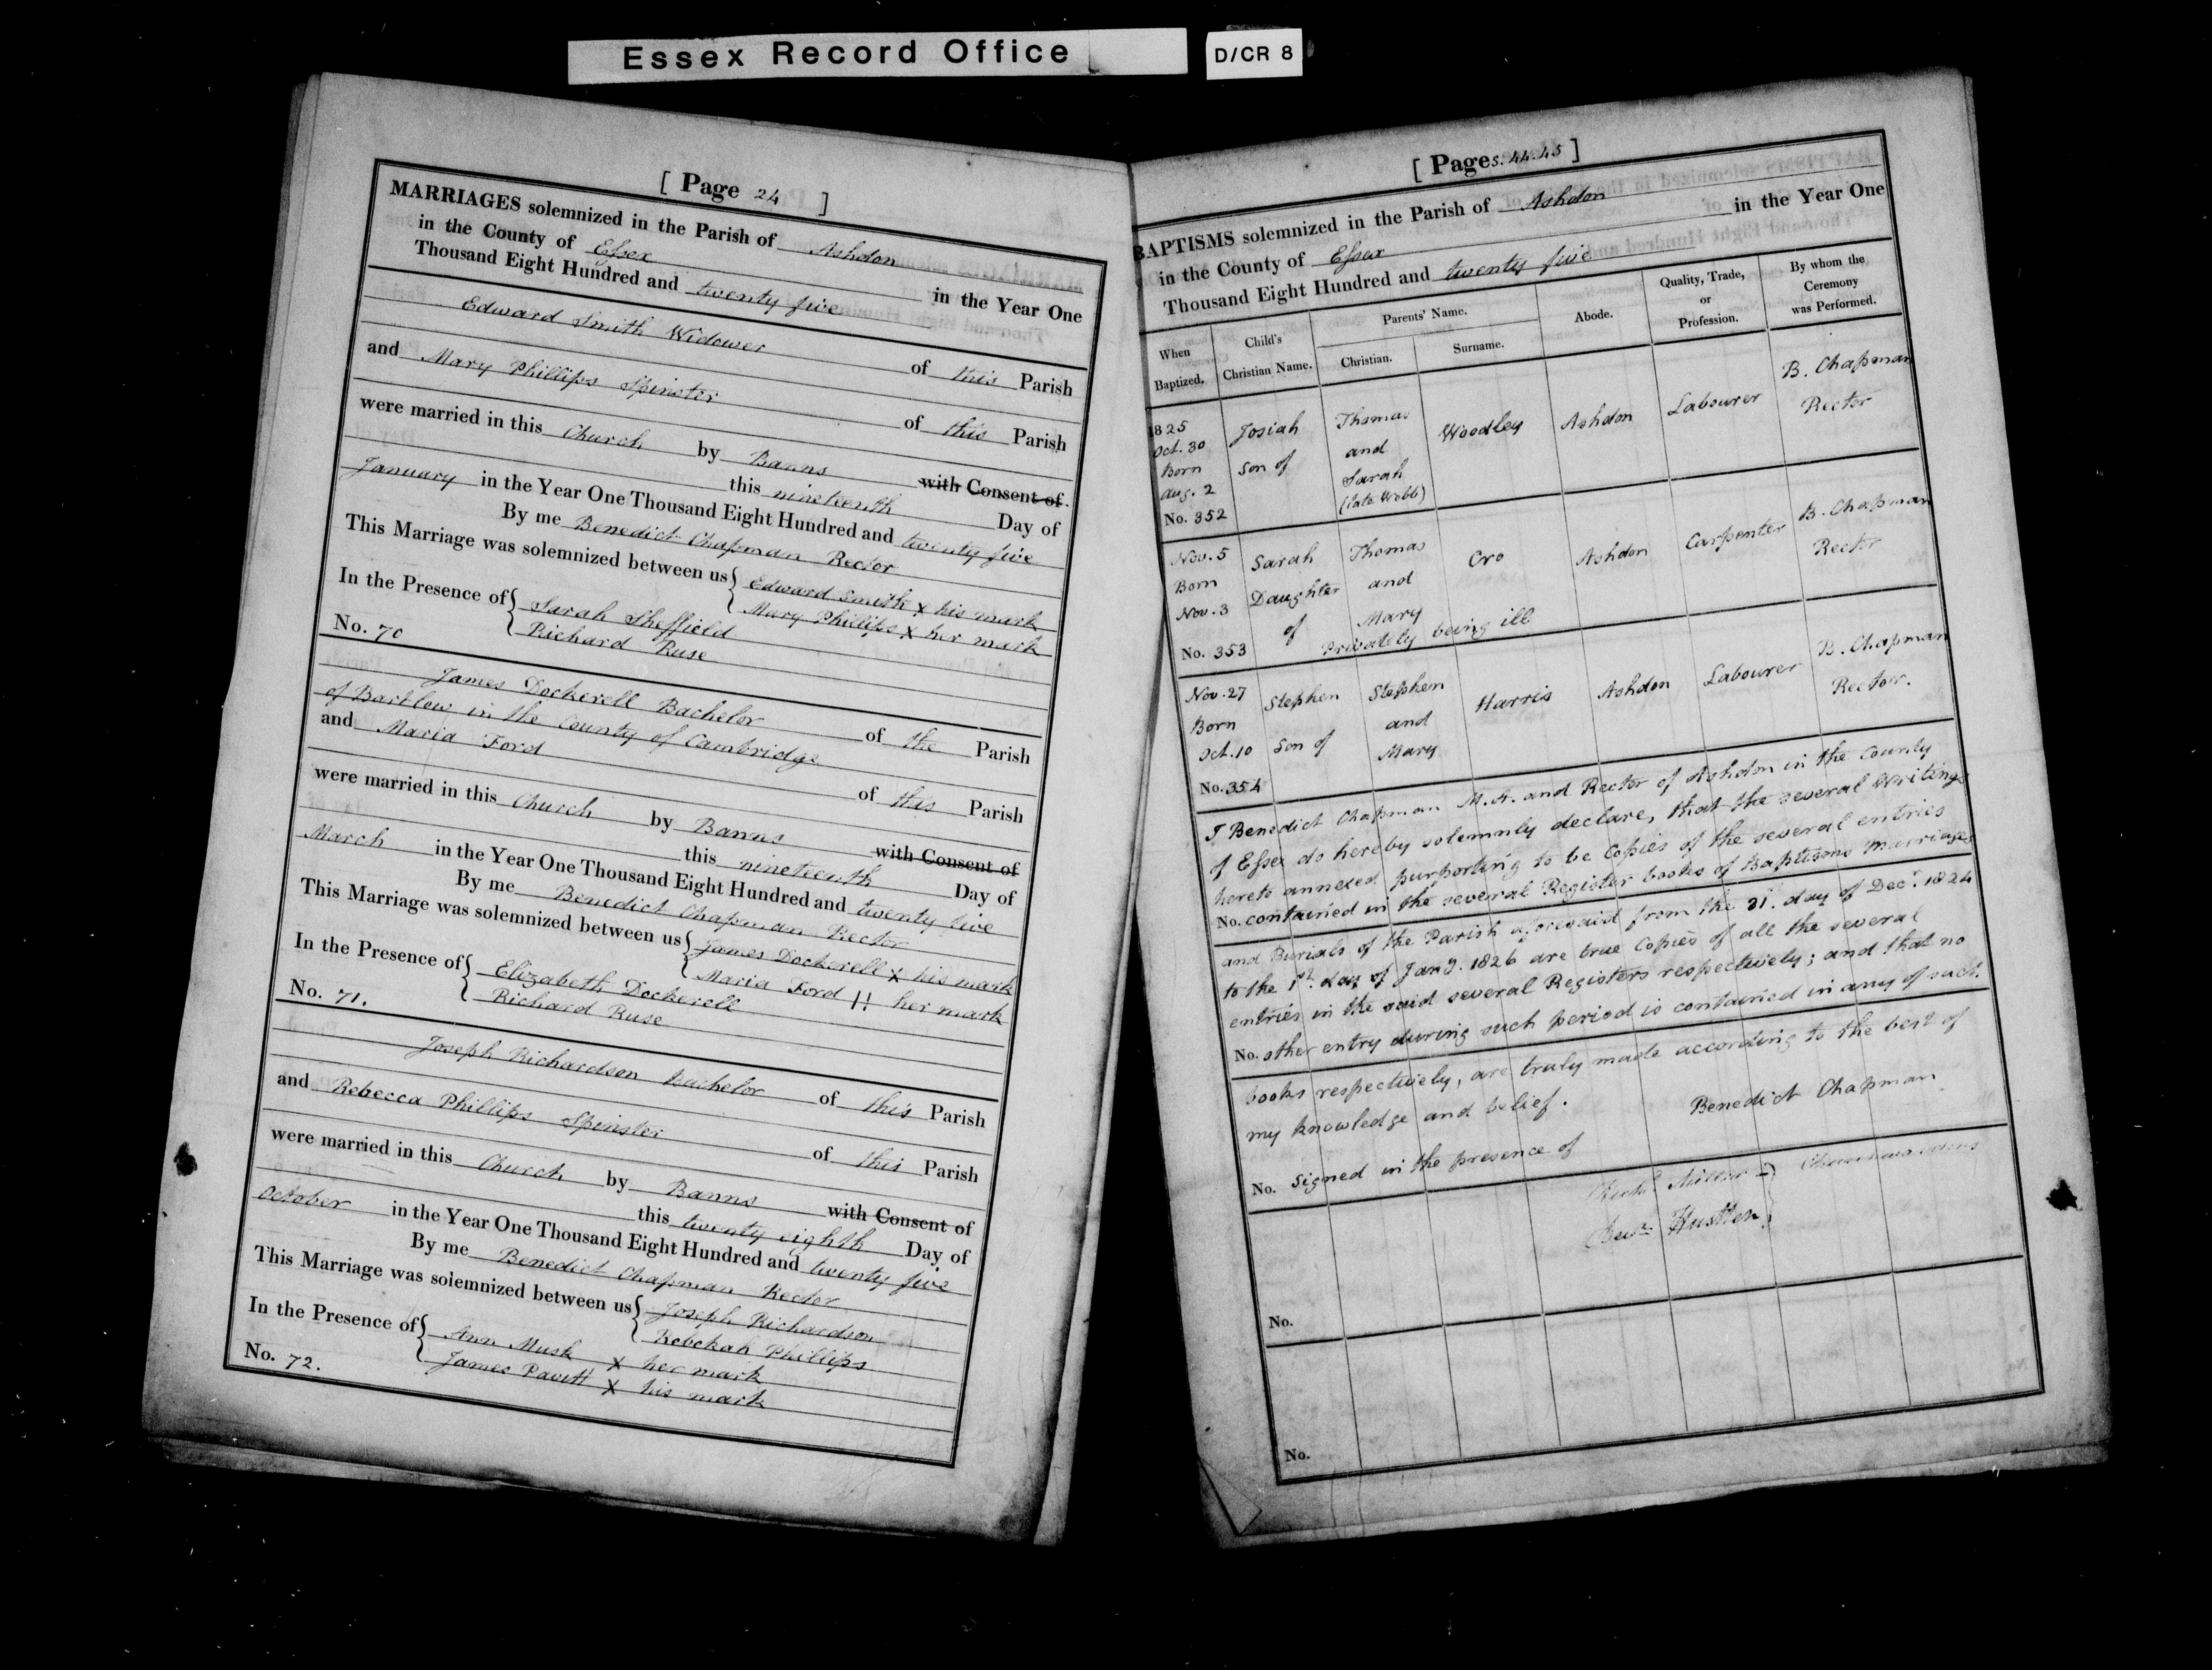 Essex Record Office
D/CR 8
[ Page 24 ]
MARRIAGES solemnized in the Parish of Ashdon
in the County of Essex in the Year One
Thousand Eight Hundred and twenty five
Edward Smith Widower of this Parish
and Mary Phillips Spinster of this Parish
were married in this Church by Banns with Consent of
this nineteenth Day of
January in the Year One Thousand Eight Hundred and twenty five
By me Benedict Chapman Rector
This Marriage was solemnized between us { Edward Smith x his mark
Mary Phillips x her mark
In the Presence of { Sarah Sheffield
Richard Ruse
No. 70
James Dockerell Bachelor of the Parish
of Bartlow in the County of Cambridge
and Maria Ford of this Parish
were married in this Church by Banns with Consent of
this nineteenth Day of
March in the Year One Thousand Eight Hundred and twenty five
By me Benedict Chapman Rector
This Marriage was solemnized between us { James Dockerell x his mark
Maria Ford !! her mark
In the Presence of { Elizabeth Dockerell
Richard Ruse
No. 71.
Joseph Richardson Bachelor of this Parish
and Rebecca Phillips Spinster of this Parish
were married in this Church by Banns with Consent of
this twenty eighth Day of
October in the Year One Thousand Eight Hundred and twenty five
By me Benedict Chapman Rector
This Marriage was solemnized between us { Joseph Richardson
Rebekah Phillips
In the Presence of { Ann Musk x her mark
James Pavitt x his mark
No. 72.
[ Pages. 44.45 ]
BAPTISMS solemnized in the Parish of Ashdon
in the County of Essex in the Year One
Thousand Eight Hundred and twenty five
When Baptized.
Child's Christian Name.
Parents' Name.
Christian.
Surname.
Abode.
Quality, Trade, or Profession.
By whom the Ceremony was Performed.
1825 Oct. 30 Born Aug. 2 No. 352
Josiah Son of
Thomas and Sarah (late Webb)
Woodley
Ashdon
Labourer
B. Chapman Rector
Nov. 5 Born Nov. 3 No. 353
Sarah Daughter of
Thomas and Mary
Cro
Ashdon
Carpenter
B. Chapman Rector
Privately being ill
Nov. 27 Born Oct. 10 No. 354
Stephen Son of
Stephen and Mary
Harris
Ashdon
Labourer
B. Chapman Rector.
I Benedict Chapman M.A. and Rector of Ashdon in the County
of Essex do hereby solemnly declare, that the several Writings
hereto annexed purporting to be Copies of the several entries
No. contained in the several Register books of Baptisms Marriages
and Burials of the Parish aforesaid from the 31. day of Decr. 1824
to the 1st. day of Jany. 1826 are true Copies of all the several
entries in the said several Registers respectively; and that no
No. other entry during such period is contained in any of such
books respectively, are truly made according to the best of
my knowledge and belief. Benedict Chapman
No. Signed in the presence of
Miller } Churchwardens
No.
No.